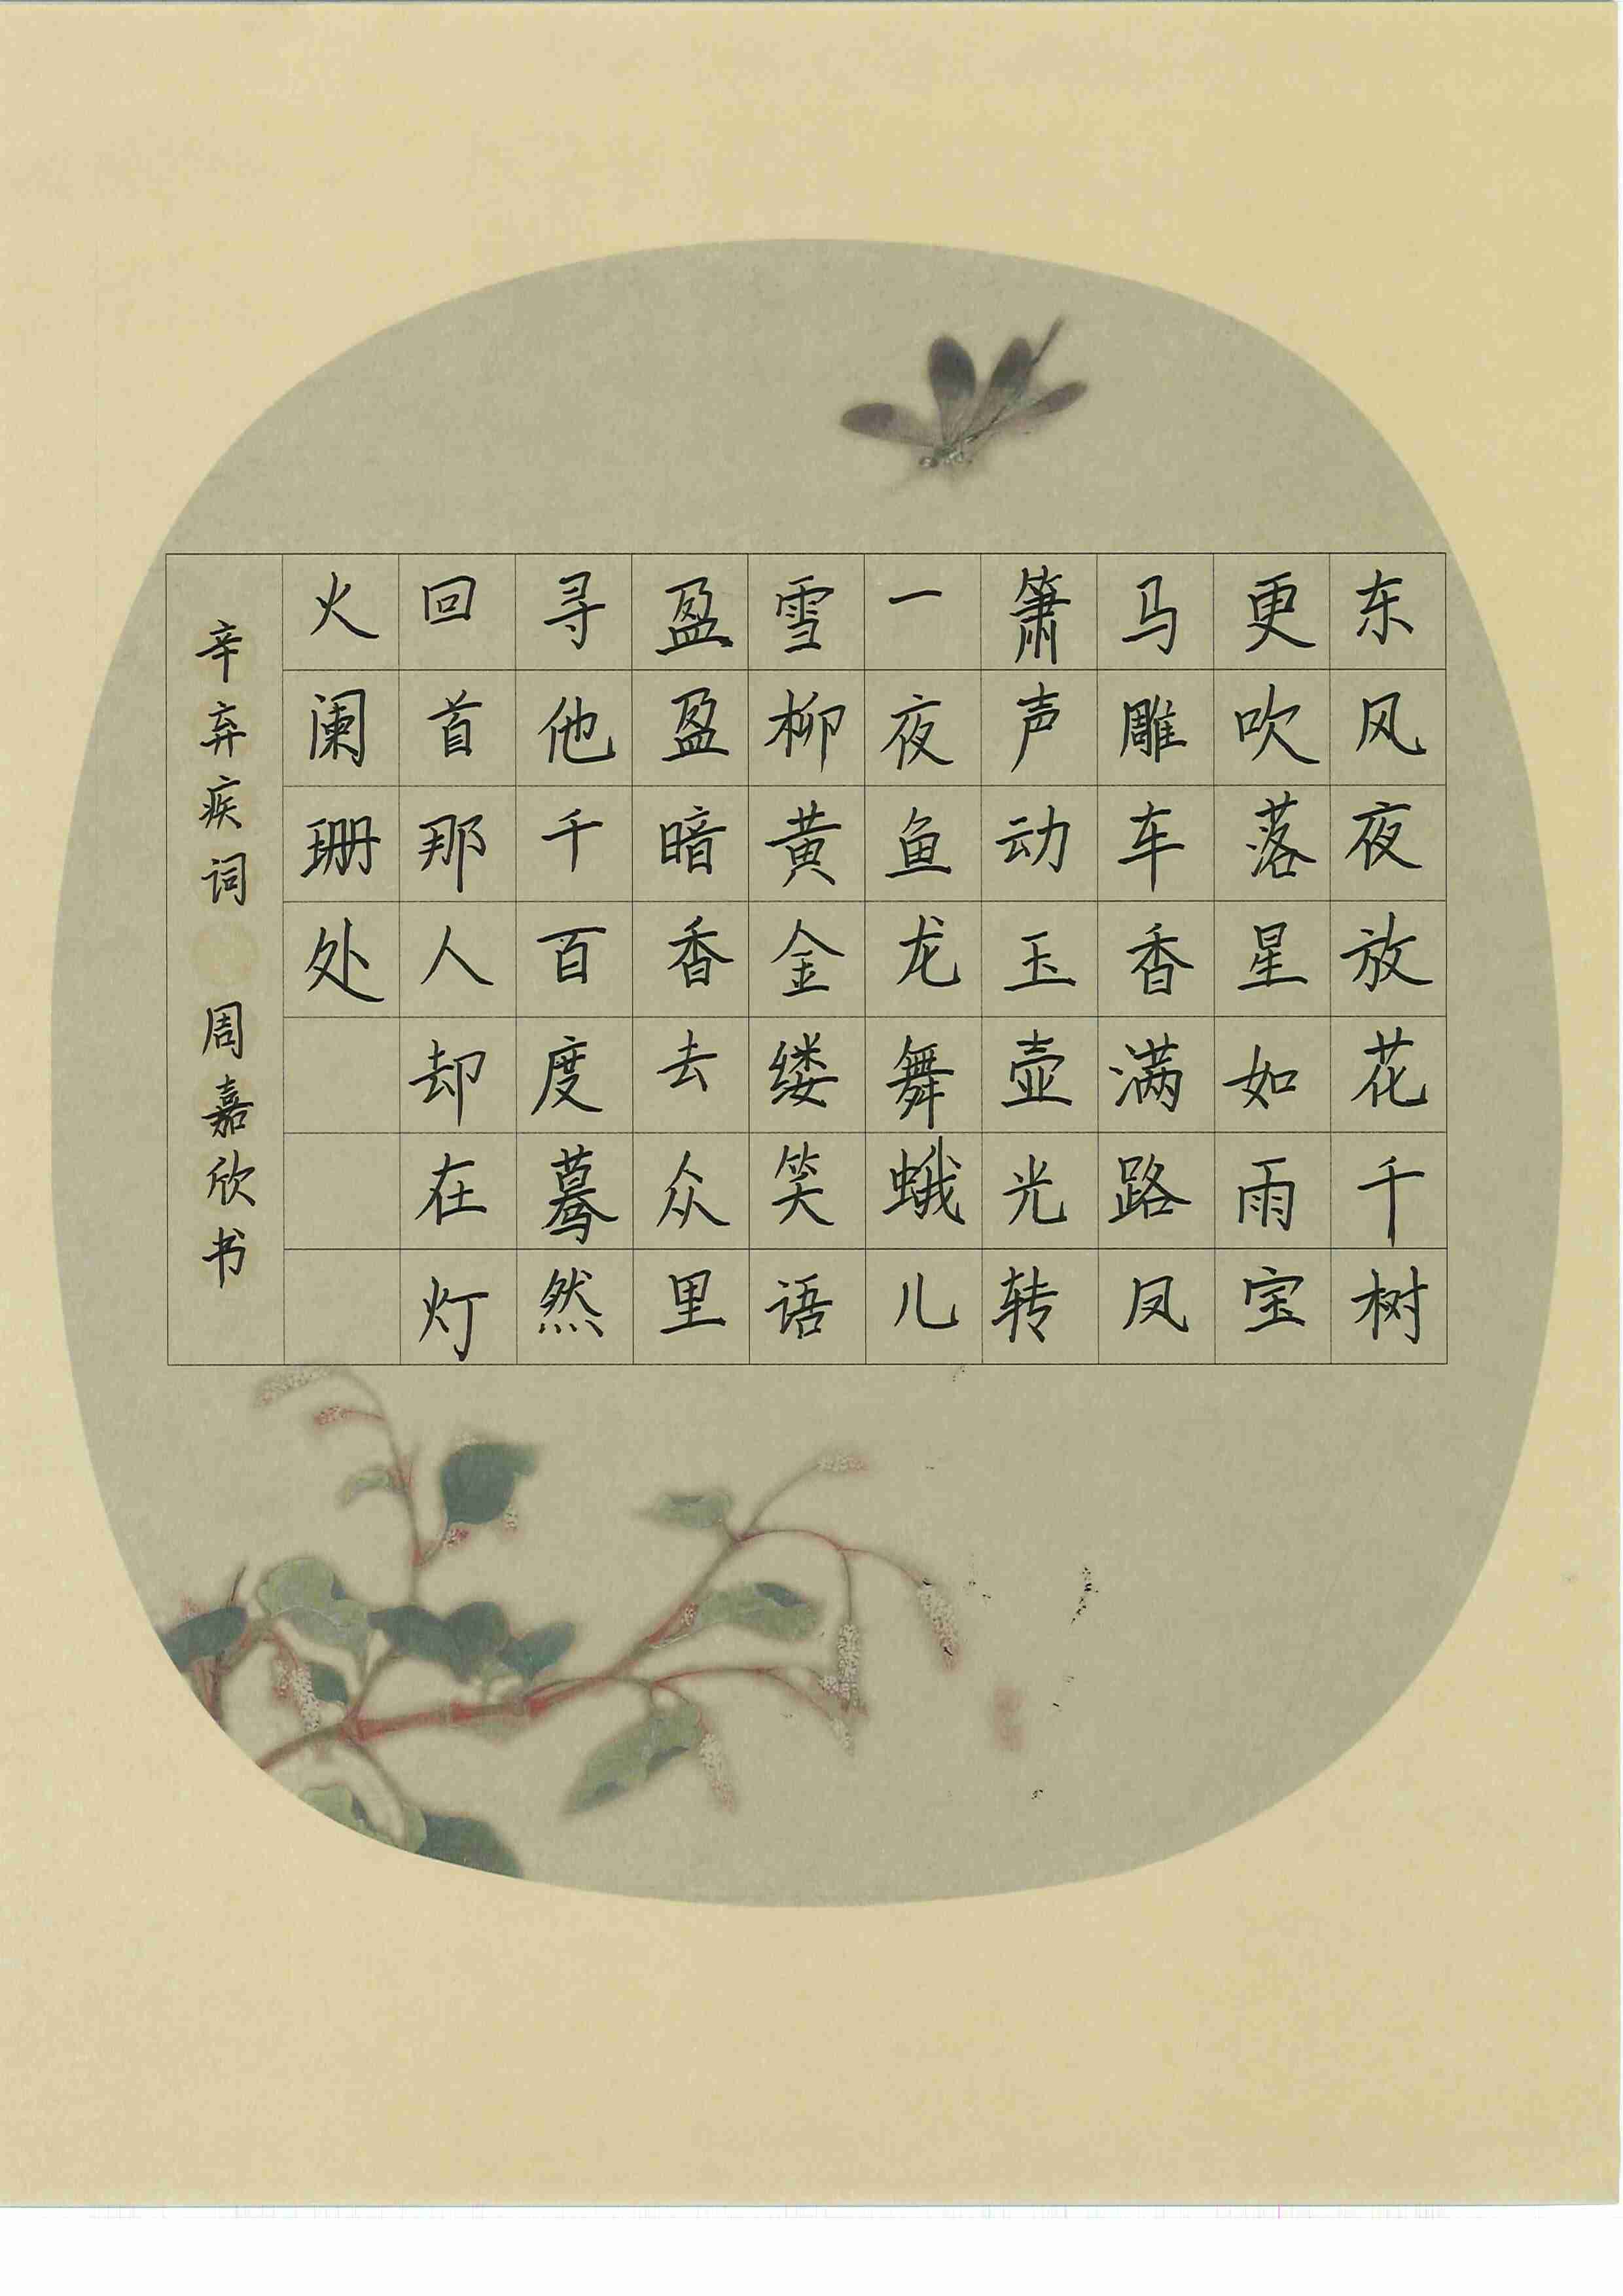 东风夜放花千树
更吹落星如雨宝
马雕车香满路凤
箫声动玉壶光转
一夜鱼龙舞蛾儿
雪柳黄金缕笑语
盈盈暗香去众里
寻他千百度蓦然
回首那人却在灯
火阑珊处
辛弃疾词 周嘉欣书